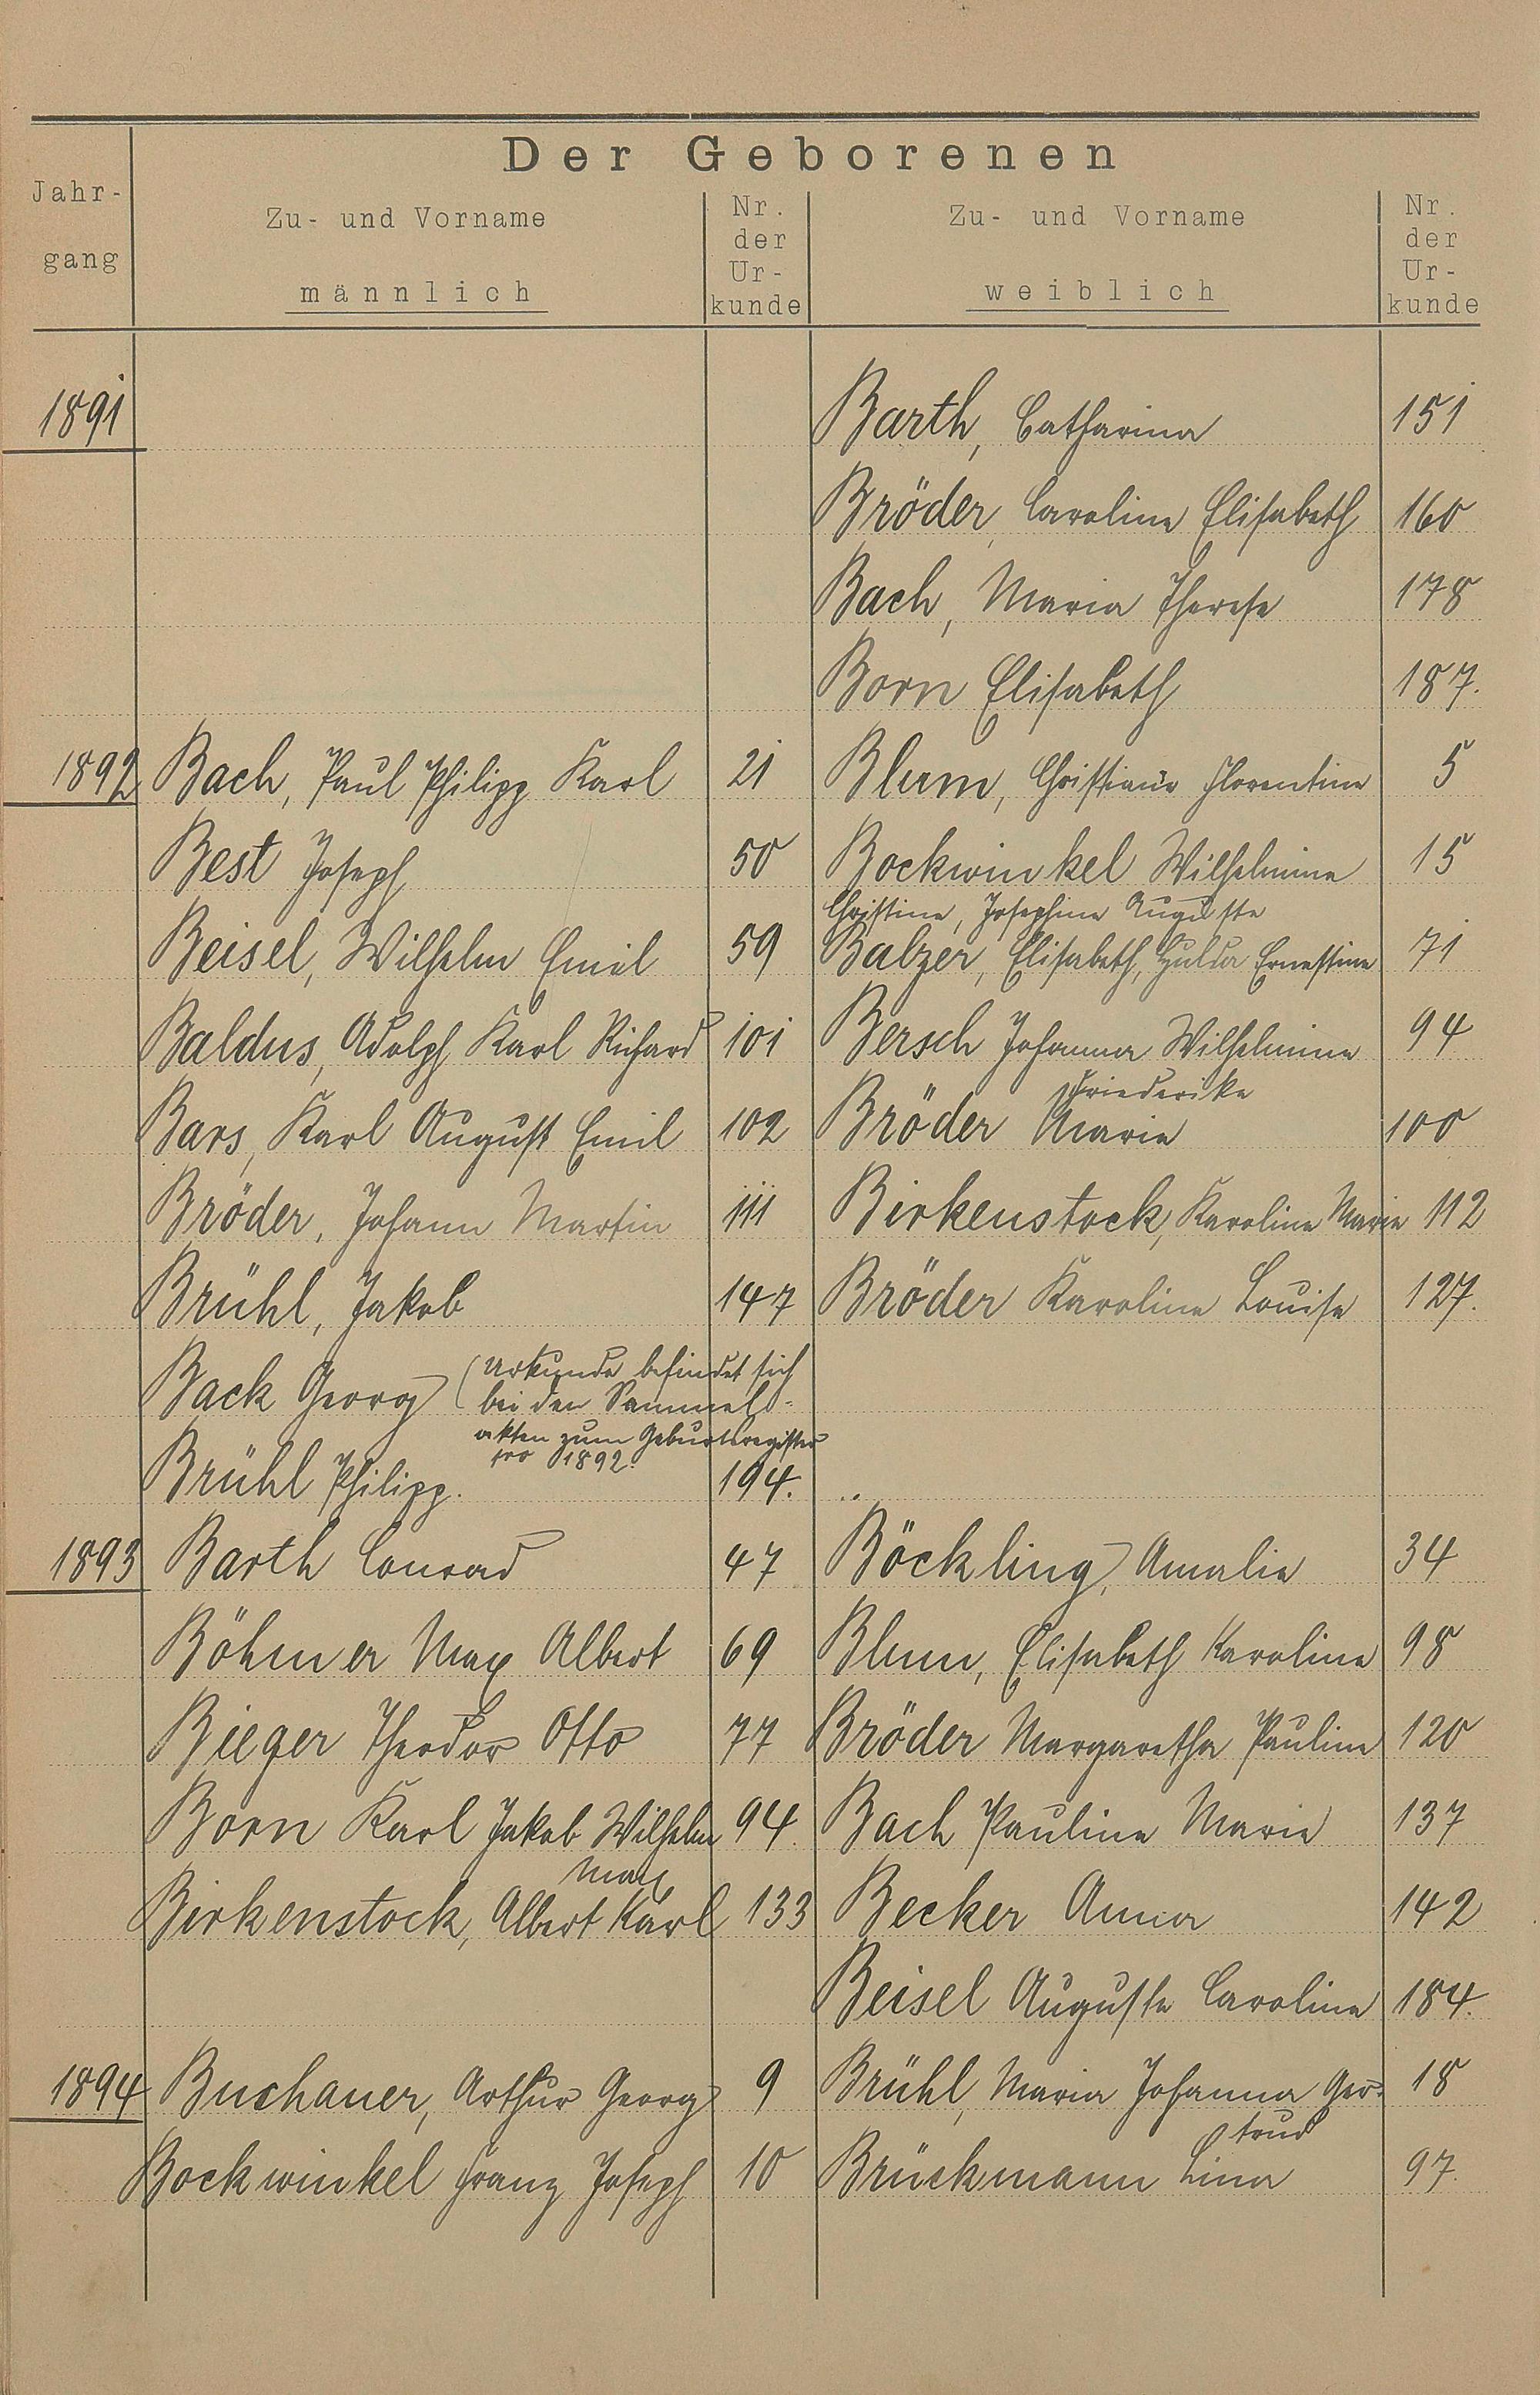 Der Geborenen
Jahr-
gang
Zu- und Vorname
männlich
Nr.
der
Ur-
kunde
Zu- und Vorname
weiblich
Nr.
der
Ur-
kunde
1891 Barth, Catharina 151
Bröder, Caroline Elisabeth 160
Bach, Maria Therese 178
Born Elisabeth 187.
1892 Bach, Paul Philipp Karl 21 Blum, Christiane Florentine 5
Best Joseph 50 Bockwinkel Wilhelmine 15
Christine, Josephine Auguste
Beisel, Wilhelm Emil 59 Balzer, Elisabeth, Hulda Ernestine 71
Baldus, Adolph Karl Richard 101 Bersch Johanna Wilhelmine 94
Friederike
Bars, Karl August Emil 102 Bröder Marie 100
Bröder, Johann Martin 111 Birkenstock, Karoline Marie 112
Brühl, Jakob 147 Bröder Karoline Louise 127.
Back Georg (Urkunde befindet sich
bei den Sammel-
akten zum Geburtsregister
pro 1892.
Brühl Philipp. 194.
1893 Barth Conrad 47 Böckling, Amalie 34
Böhmer Max Albert 69 Blum, Elisabeth Karoline 98
Bieger Theodor Otto 77 Bröder Margaretha Pauline 120
Born Karl Jakob Wilhelm 94. Bach Pauline Marie 137
Max
Birkenstock, Albert Karl 133 Becker Anna 142
Beisel Auguste Caroline 184.
1894 Buchauer, Arthur Georg 9 Brühl, Maria Johanna Ger- 18
trud
Bockwinkel Franz Joseph 10 Brückmann Lina 97.